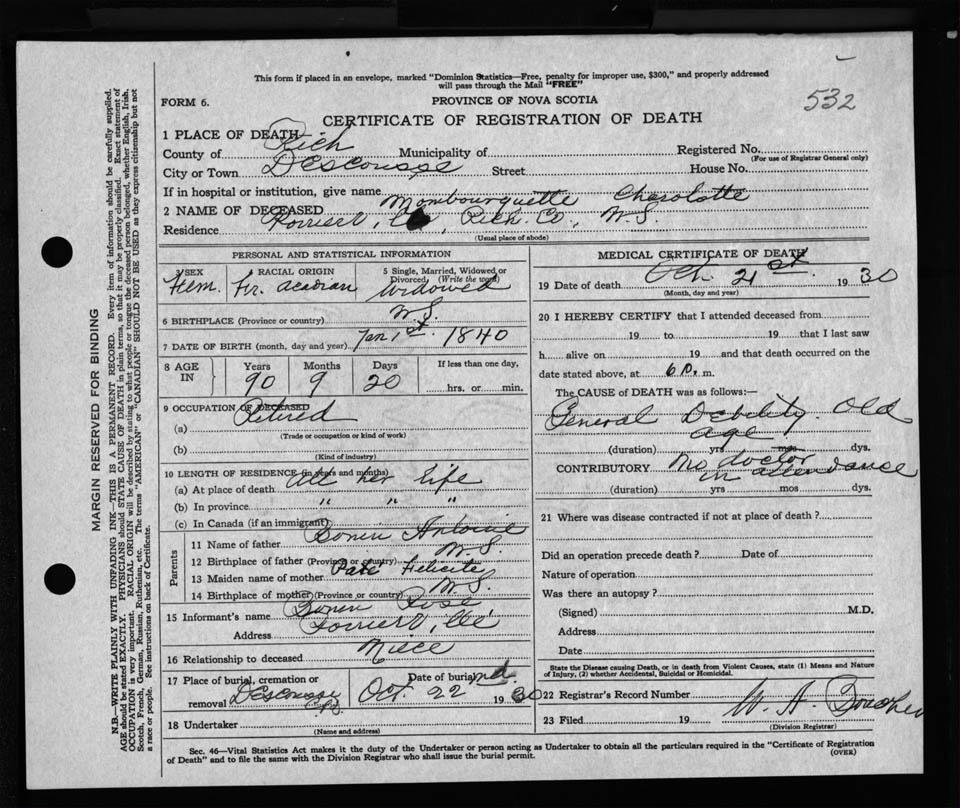 This form if placed in an envelope, marked "Dominion Statistics—Free, penalty for improper use, $300," and properly addressed
will pass through the Mail "FREE"
532
FORM 6.
PROVINCE OF NOVA SCOTIA
CERTIFICATE OF REGISTRATION OF DEATH
1 PLACE OF DEATH
County of Rich Municipality of Registered No.
(For use of Registrar General only)
City or Town Descousse Street House No.
If in hospital or institution, give name
2 NAME OF DECEASED Mombourquette Charolotte
Residence Poirier, Rich. Co., N.S.
(Usual place of abode)
PERSONAL AND STATISTICAL INFORMATION
SEX RACIAL ORIGIN 5 Single, Married, Widowed or Divorced, (Write the word)
Fem. Fr. Acadian Widowed
6 BIRTHPLACE (Province or country) N.S.
7 DATE OF BIRTH (month, day and year) Jan. 1st. 1840
8 AGE IN Years Months Days If less than one day,
90 9 20 hrs. or min.
9 OCCUPATION OF DECEASED
(a) Retired
(Trade or occupation or kind of work)
(b)
(Kind of industry)
10 LENGTH OF RESIDENCE (in years and months)
(a) At place of death All her life
(b) In province " " "
(c) In Canada (if an immigrant)
Parents
11 Name of father Bonin Antoine
12 Birthplace of father (Province or country) N.S.
13 Maiden name of mother Felicite
14 Birthplace of mother (Province or country) N.S.
15 Informant's name Bonin Rose
Address
16 Relationship to deceased Niece
17 Place of burial, cremation or removal Descousse Date of burial Oct. 22nd. 1930
18 Undertaker
(Name and address)
MEDICAL CERTIFICATE OF DEATH
19 Date of death Oct. 21st. 1930
(Month, day and year)
20 I HEREBY CERTIFY that I attended deceased from
19 to 19 that I last saw
h alive on 19 and that death occurred on the
date stated above, at 6 P. m.
The CAUSE of DEATH was as follows:—
General Debility. Old
age
(duration) yrs mos dys.
CONTRIBUTORY No doctor
in attendance
(duration) yrs mos dys.
21 Where was disease contracted if not at place of death?
Did an operation precede death? Date of
Nature of operation
Was there an autopsy?
(Signed) M.D.
Address
Date
State the Disease causing Death, or in death from Violent Causes, state (1) Means and Nature
of Injury, (2) whether Accidental, Suicidal or Homicidal.
22 Registrar's Record Number
23 Filed 19 W. A.
(Division Registrar)
Sec. 46—Vital Statistics Act makes it the duty of the Undertaker or person acting as Undertaker to obtain all the particulars required in the "Certificate of Registration
of Death" and to file the same with the Division Registrar who shall issue the burial permit.
(OVER)
MARGIN RESERVED FOR BINDING
N.B.—WRITE PLAINLY WITH UNFADING INK—THIS IS A PERMANENT RECORD. Every item of information should be carefully supplied.
AGE should be stated EXACTLY. PHYSICIANS should STATE CAUSE OF DEATH in plain terms, so that it may be properly classified. Exact statement of
OCCUPATION is very important. RACIAL ORIGIN will be described by stating to what people or tongue the deceased person belonged, whether English, Irish,
Scotch, French, German, Russian, Ruthenian, etc. The terms "AMERICAN" or "CANADIAN" SHOULD NOT BE USED as they express citizenship but not
a race or people. See instructions on back of Certificate.